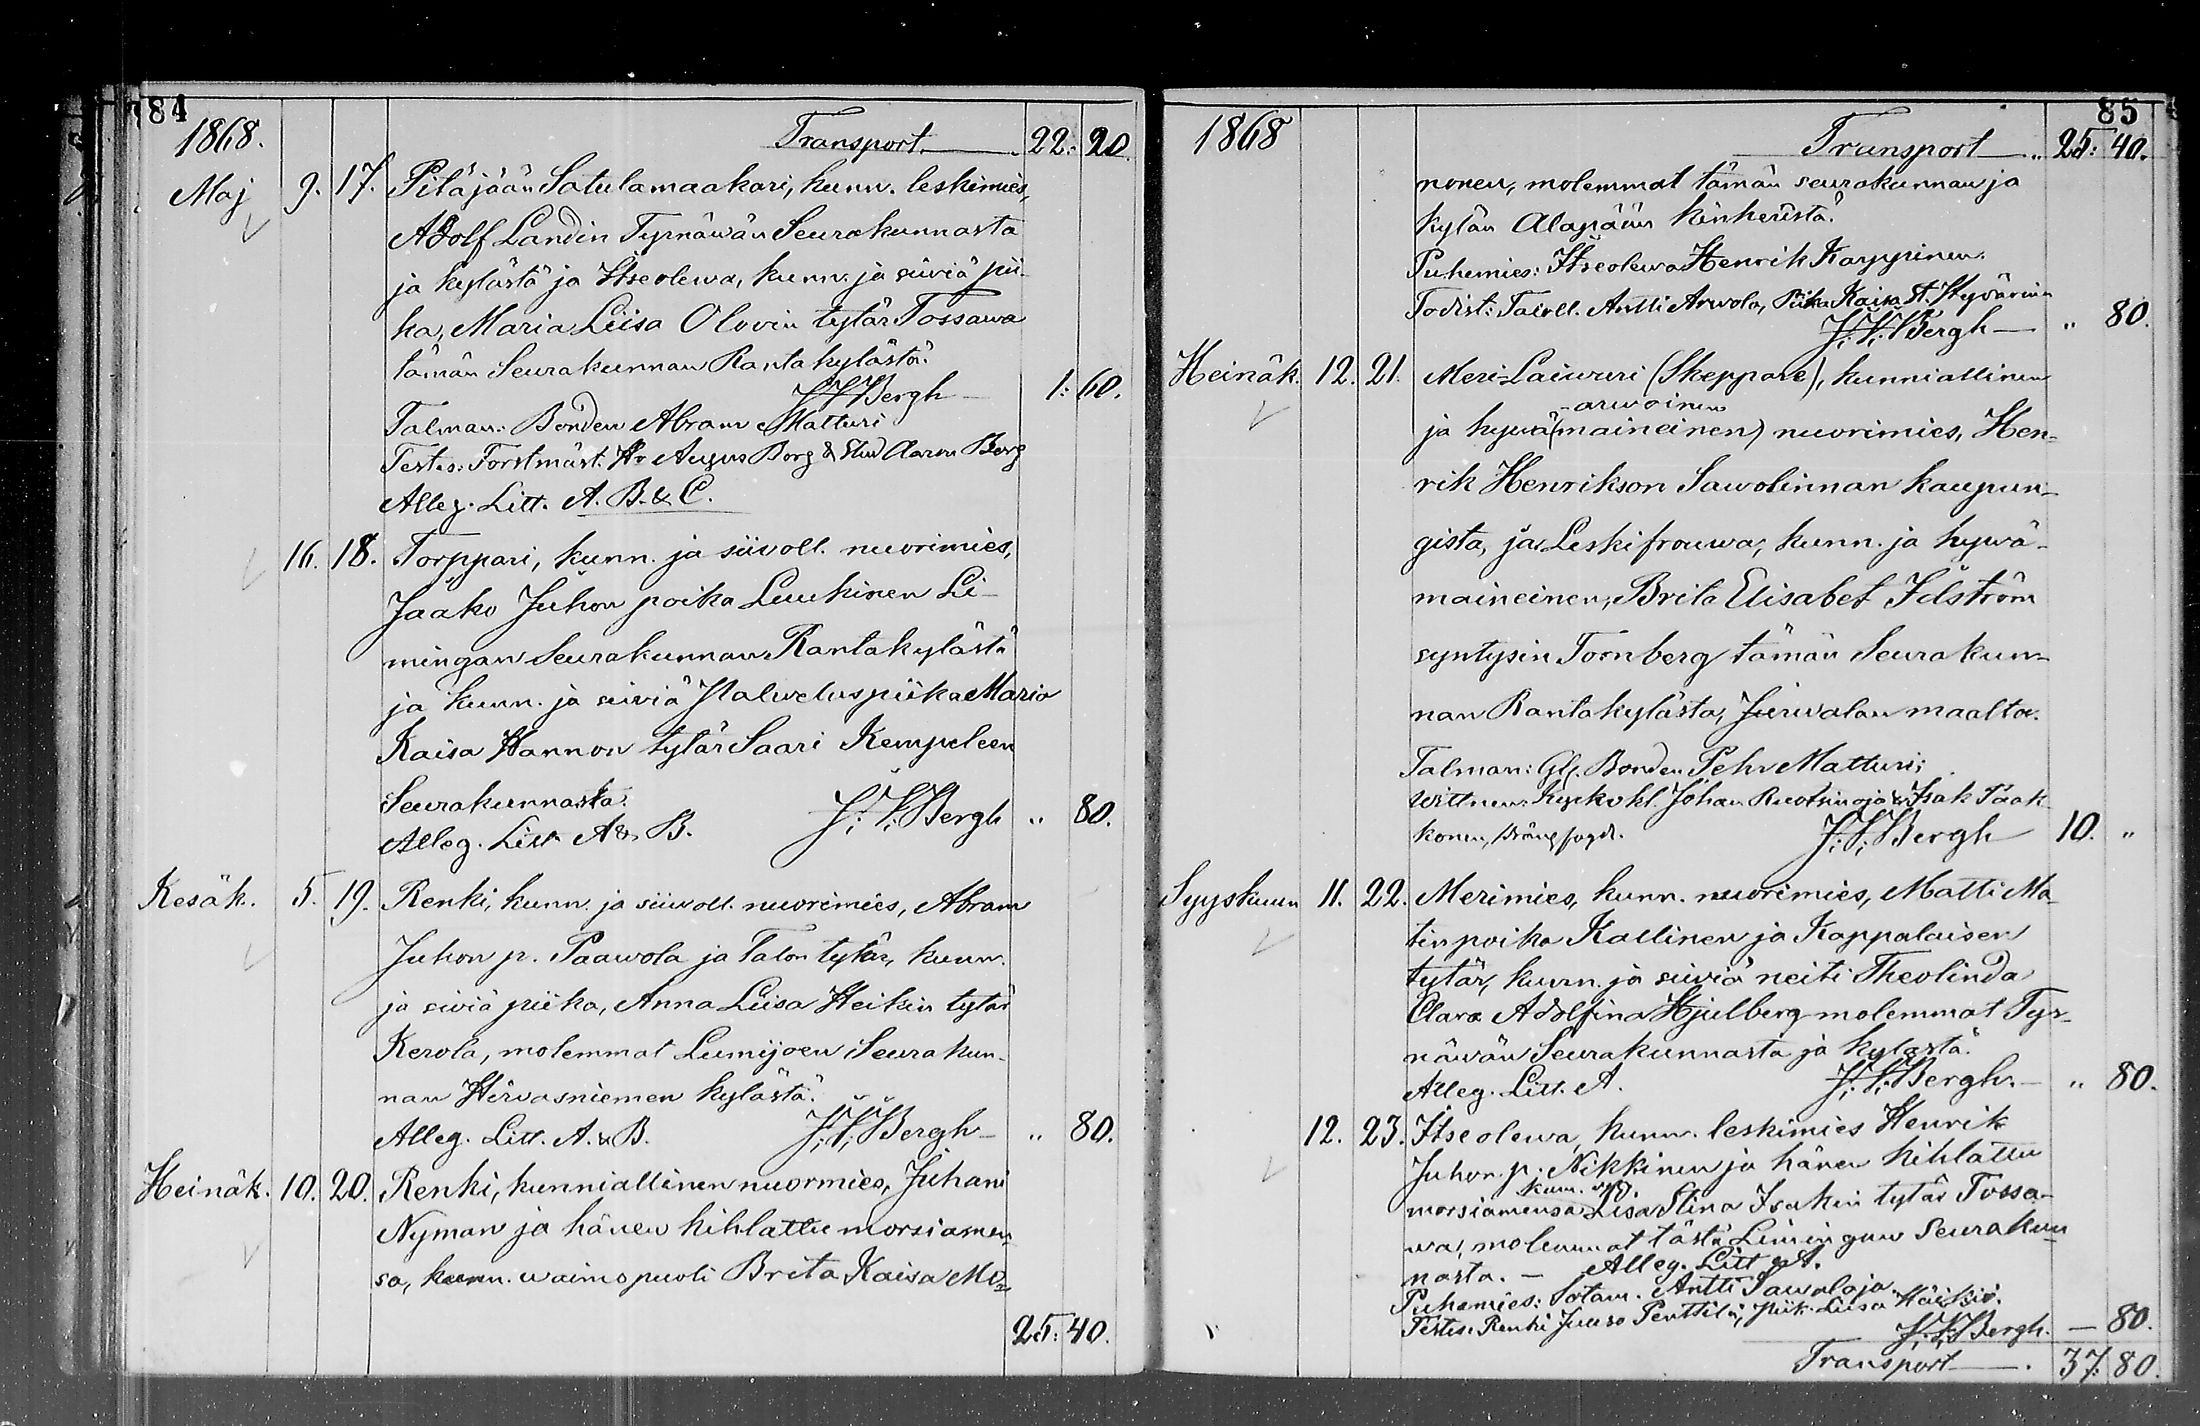 84
1868. Transport 22: 20.
Maj 9. 17. Pitäjään Satulamaakari, kunn. leskimies,
Adolf Landin Tyrnäwän Seurakunnasta
ja kylästä ja Itseolewa, kunn. ja siiviä pii-
ka, Maria Liisa Olovin tytär Tossawa
tämän Seurakunnan Ranta kylästä.
J. V. Bergh 1: 60.
Talman: Bonden Abram Matturi
Testes: Forstmäst. Hr August Borg & Stud Aaron Borg
Alleg. Litt. A. B. & C.
16. 18. Torppari, kunn. ja siivoll. nuorimies,
Jaako Juhon poika Luukinen Li-
mingan Seurakunnan Rantakylästä
ja kunn. ja siiviä Palweluspiika Maria
Kaisa Hannon tytär Saari Kempeleen
Seurakunnasta.
Alleg. Litt A & B. J. V. Bergh " 80.
Kesäk. 5. 19. Renki, kunn. ja siiwoll. nuorimies, Abram
Juhon p. Paawola ja Talon tytär, kunn.
ja siviä piika, Anna Liisa Heikin tytär
Kerola, molemmat Lumijoen Seurakun-
nan Hirvasniemen kylästä.
Alleg. Litt. A. & B. J. V. Bergh " 80.
Heinäk. 10. 20. Renki, kunniallinen nuormies, Juhani
Nyman ja hänen kihlattu morsiamen-
sa, kunn. waimopuoli Brita Kaisa Mo-
25: 40.
85
1868 Transport " 25: 40.
nonen, molemmat tämän seurakunnan ja
kylän Alapään kinkeristä.
Puhemies: Itseolewa Henrik Karppinen.
Todist: Taloll. Antti Arwola, Piika Kaisa St. Hyvärinen
J. V. Bergh " 80.
Heinäk. 12. 21. Meri Laiwuri (Skeppare), kunniallinen
-arwoinen
ja hywä (maineinen) nuorimies, Hen-
rik Henrikson Sawolinnan kaupun-
gista, ja Leskifrouwa, kunn. ja hywä-
maineinen, Brita Elisabet Idström
syntysin Toonberg tämän Seurakun-
nan Rantakylästa, Jurwalan maalta.
Talman: Gl. Bonden Pehr Matturi;
Wittnen: Kyrkovkt. Johan Ruotsinoja & Isak Paak
konen, Drängfogde. J. V. Bergh 10. "
Syyskuun 11. 22. Merimies, kunn. nuorimies, Matti Ma-
tin poika Kallinen ja Kappalaisen
tytär, kunn. ja siiviä neiti Theolinda
Clara Adolfina Hjulberg molemmat Tyr-
näwän Seurakunnasta ja kylästä.
Alleg. Litt. A. J. V. Bergh. " 80.
12. 23. Itseolewa, kunn. leskimies Henrik
Juhon. p. Nikkinen ja hänen kihlattu
kunn.
morsiamensa Lisa Stina Isakin tytär Tossa-
wa, molemmat tästä Limingan Seurakun
nasta. - Alleg. Litt A.
Puhemies: Sotam. Antti Sawaloja
Testes: Renki Juuso Penttilä, piik. Liisa Häikiö.
J. V. Bergh. - 80.
Transport 37: 80.